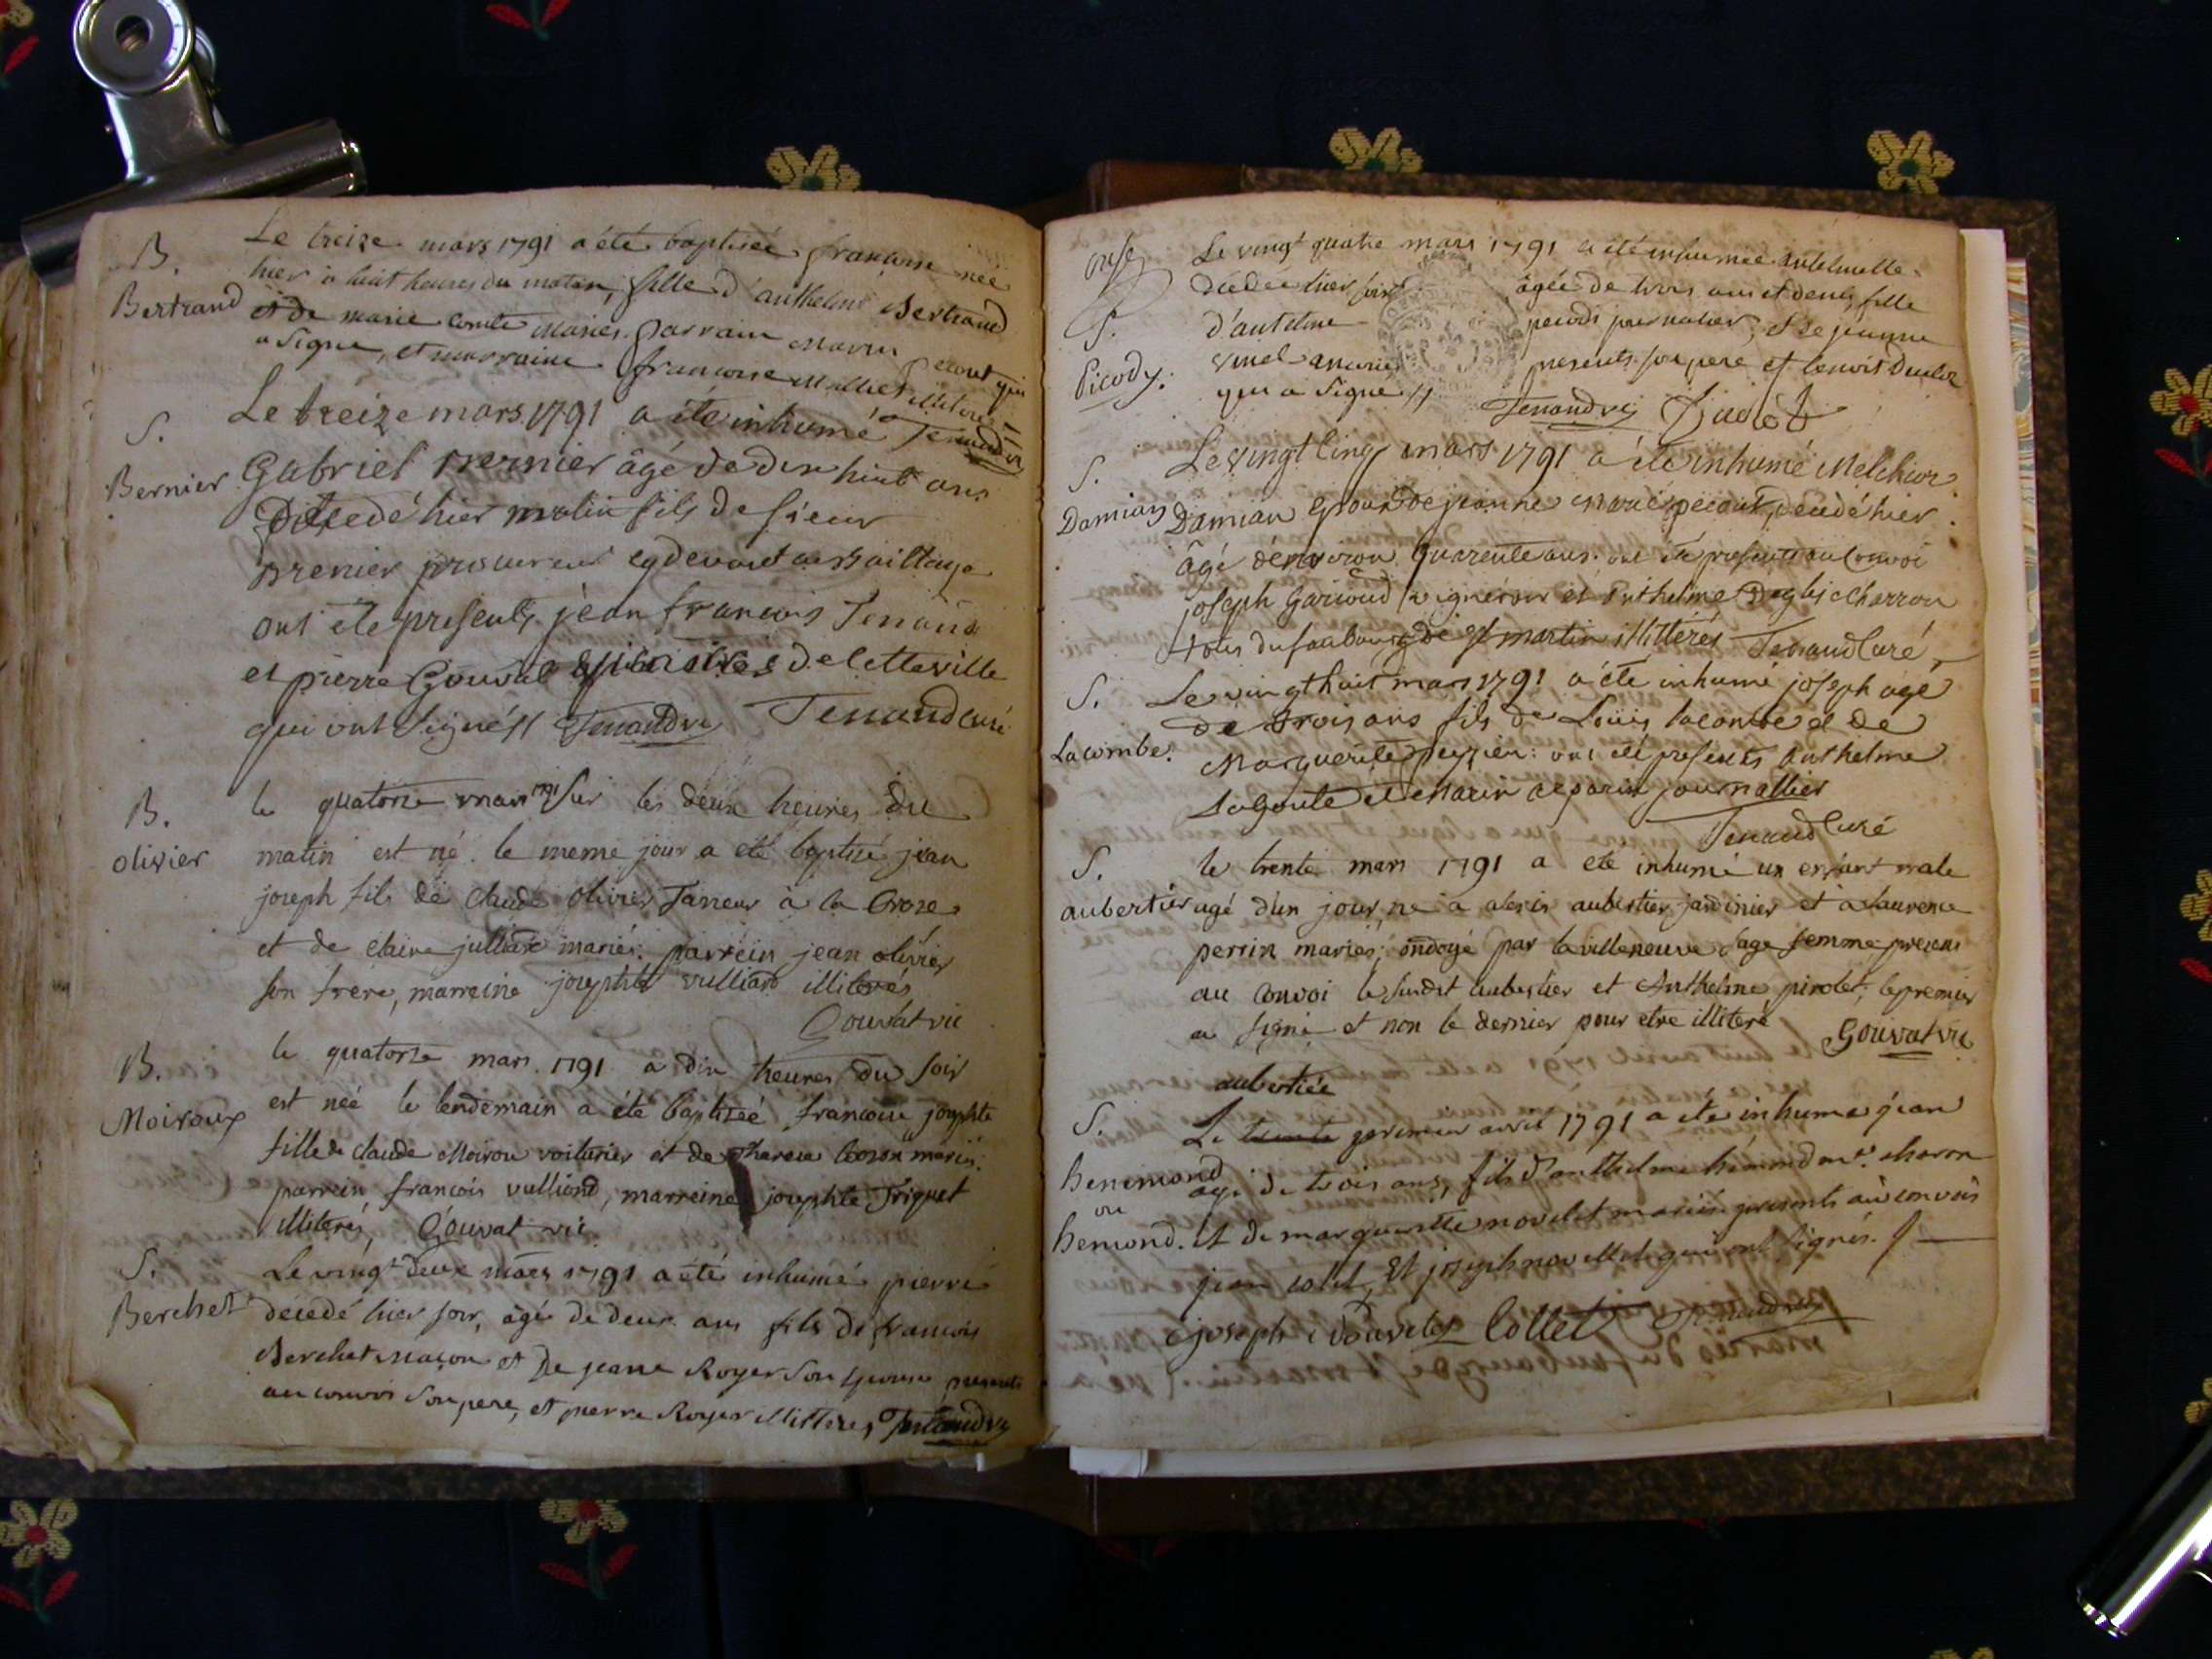 B.
Bertrand
Le treize mars 1791 a été baptiseé francoise née
hier à huit heures du matin, fille d'anthelme Bertrand
et de marie comte mariés. parrain marin perout qui
a Signé, et marraine francoise
S.
Bernier
Le treize mars 1791 a été inhumé
Gabriel Brenier âgé de dix huit ans
Décedé hier matin fils de sieur
Brenier procureur cydevant au Bailliage
ont ete presents jean francois Tenand
et pierre Gouvat de cette ville
qui ont Signé // Tenand vic Tenand curé
B.
olivier
le quatorze mars 1791 sur les deux heures du
matin est né. le meme jour a eté baptisé jean
joseph fils de claude olivier Tanneur à la Croze
et de claire julliard mariés. parrein jean olivier
son frere, marreine josephte vulliard illiterés
Gouvat vic
B.
Moiroux
le quatorze mars 1791 a dix heures du soir
est née le lendemain a été baptiseé francoise josephte
fille de claude Moirou voiturier et de therese mariés.
parrein francois vulliond, marreine josephte Triquet
illiterés, Gouvat vic
S.
Berchet
Le vingt deux mars 1791 a été inhumé pierre
décedé hier soir, agé de deux ans fils de francois
Berchet macon et De jeane Royer son epouse presents
au convoi son pere, et pierre Royer illitterés Tenand vic
onse
S.
Picody.
Le vingt quatre mars 1791 a été inhumée antelmette
décédée hier soir âgée de trois ans et demy fille
d'antelme journalier, et de jeanne
vinel mariés presents son pere et benoit
qui a Signé // Tenand vic
S.
Damian
Le vingt cinq mars 1791 a été inhumé Melchior
Damian Epoux de jeanne marie perout, décédé hier
âgé d'environ quarente ans. ont été presents au Convoi
joseph Garioud vigneron et Anthelme charron
tous du faubourg de st martin illitterés Tenand Curé
S.
Lacombe.
Le vingt huit mars 1791 a été inhumé joseph agé
de trois ans fils de Louis lacombe et de
Marguerite peyzieu: ont été presents Anthelme
Lagoute et marin journallier
Tenand Curé
S.
aubertier
le trente mars 1791 a eté inhumé un enfant male
agé d'un jour né a alexis aubertier jardinier et à laurence
perrin mariés; ondoyé par la villeneuve sage femme, presens
au convoi le susdit aubertier et Anthelme pirolet, le premier
a signé et non le dernier pour etre illiteré Gouvat vic
aubertiée
S.
henemond
ou
hemond.
Le trente premier avril 1791 a ete inhumé jean
agé de trois ans, fils d'anthelme hémond mre charon
et de margueritte novelet mariés presents au convois
jean colet, Et joseph novellet qui ont Signés.
joseph Nouvelet Collet Tenand vic